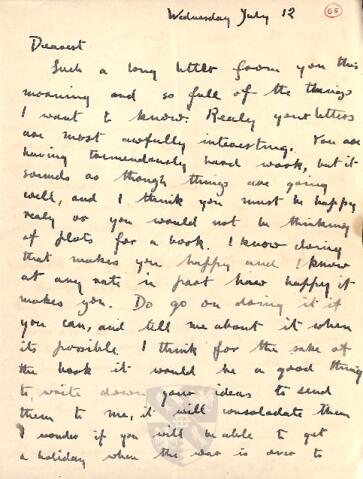 Wednesday July 12
65
Dearest
Such a long letter from you this
morning and so full of the things
I want to know. Realy your letters
are most awfully interesting. You are
having tremendously hard work, but it
sounds as though things are going
well, and I think you must be happy
realy or you would not be thinking
of plots for a book. I know doing
that makes you happy and I know
at any rate in part how happy it
makes you. Do go on doing it if
you can, and tell me about it when
its possible. I think for the sake of
the book it would be a good thing
to write down your ideas to send
them to me, it will consoladate them
I wonder if you will be able to get
a holiday when the war is over to